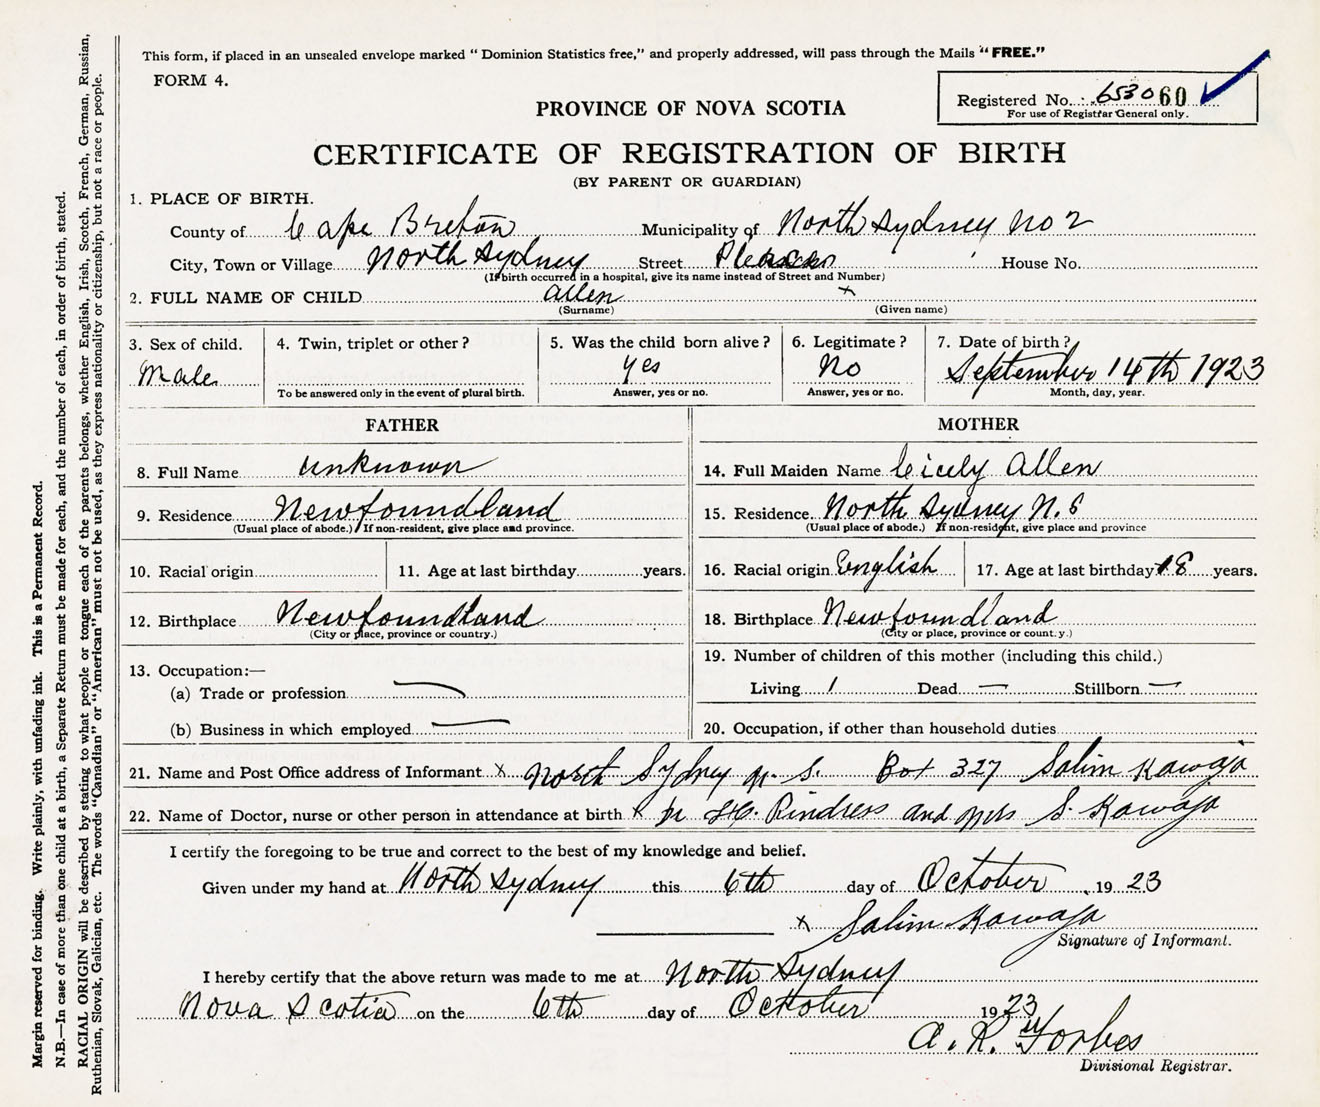 This form, if placed in an unsealed envelope marked " Dominion Statistics free," and properly addressed, will pass through the Mails "FREE."
FORM 4.
Registered No. 653060
For use of Registrar General only.
PROVINCE OF NOVA SCOTIA
CERTIFICATE OF REGISTRATION OF BIRTH
(BY PARENT OR GUARDIAN)
1. PLACE OF BIRTH.
County of Cape Breton Municipality of North Sydney No 2
City, Town or Village North Sydney Street House No.
(If birth occurred in a hospital, give its name instead of Street and Number)
2. FULL NAME OF CHILD Allen x
(Surname) (Given name)
3. Sex of child. Male
4. Twin, triplet or other?
To be answered only in the event of plural birth.
5. Was the child born alive? Yes
Answer, yes or no.
6. Legitimate? No
Answer, yes or no.
7. Date of birth? September 14th 1923
Month, day, year.
FATHER
8. Full Name unknown
9. Residence Newfoundland
(Usual place of abode.) If non-resident, give place and province.
10. Racial origin 11. Age at last birthday years.
12. Birthplace Newfoundland
(City or place, province or country.)
13. Occupation:—
(a) Trade or profession —
(b) Business in which employed —
MOTHER
14. Full Maiden Name Cicely Allen
15. Residence North Sydney N.S
(Usual place of abode.) If non-resident, give place and province
16. Racial origin English 17. Age at last birthday 18 years.
18. Birthplace Newfoundland
(City or place, province or count.y.)
19. Number of children of this mother (including this child.)
Living 1 Dead — Stillborn —
20. Occupation, if other than household duties
21. Name and Post Office address of Informant x North Sydney N. S. Box 327 Salim Kawaja
22. Name of Doctor, nurse or other person in attendance at birth x Rindress and Mrs S. Kawaja
I certify the foregoing to be true and correct to the best of my knowledge and belief.
Given under my hand at North Sydney this 6th day of October, 1923
x Salim Kawaja
Signature of Informant.
I hereby certify that the above return was made to me at North Sydney
Nova Scotia on the 6th day of October 1923
A. R. Forbes
Divisional Registrar.
Margin reserved for binding. Write plainly, with unfading ink. This is a Permanent Record.
N.B.—In case of more than one child at a birth, a Separate Return must be made for each, and the number of each, in order of birth, stated.
RACIAL ORIGIN will be described by stating to what people or tongue each of the parents belongs, whether English, Irish, Scotch, French, German, Russian,
Ruthenian, Slovak, Galician, etc. The words "Canadian" or "American" must not be used, as they express nationality or citizenship, but not a race or people.